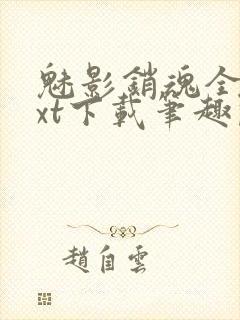 魅影銷魂全
xt下載筆趣
趙自雲